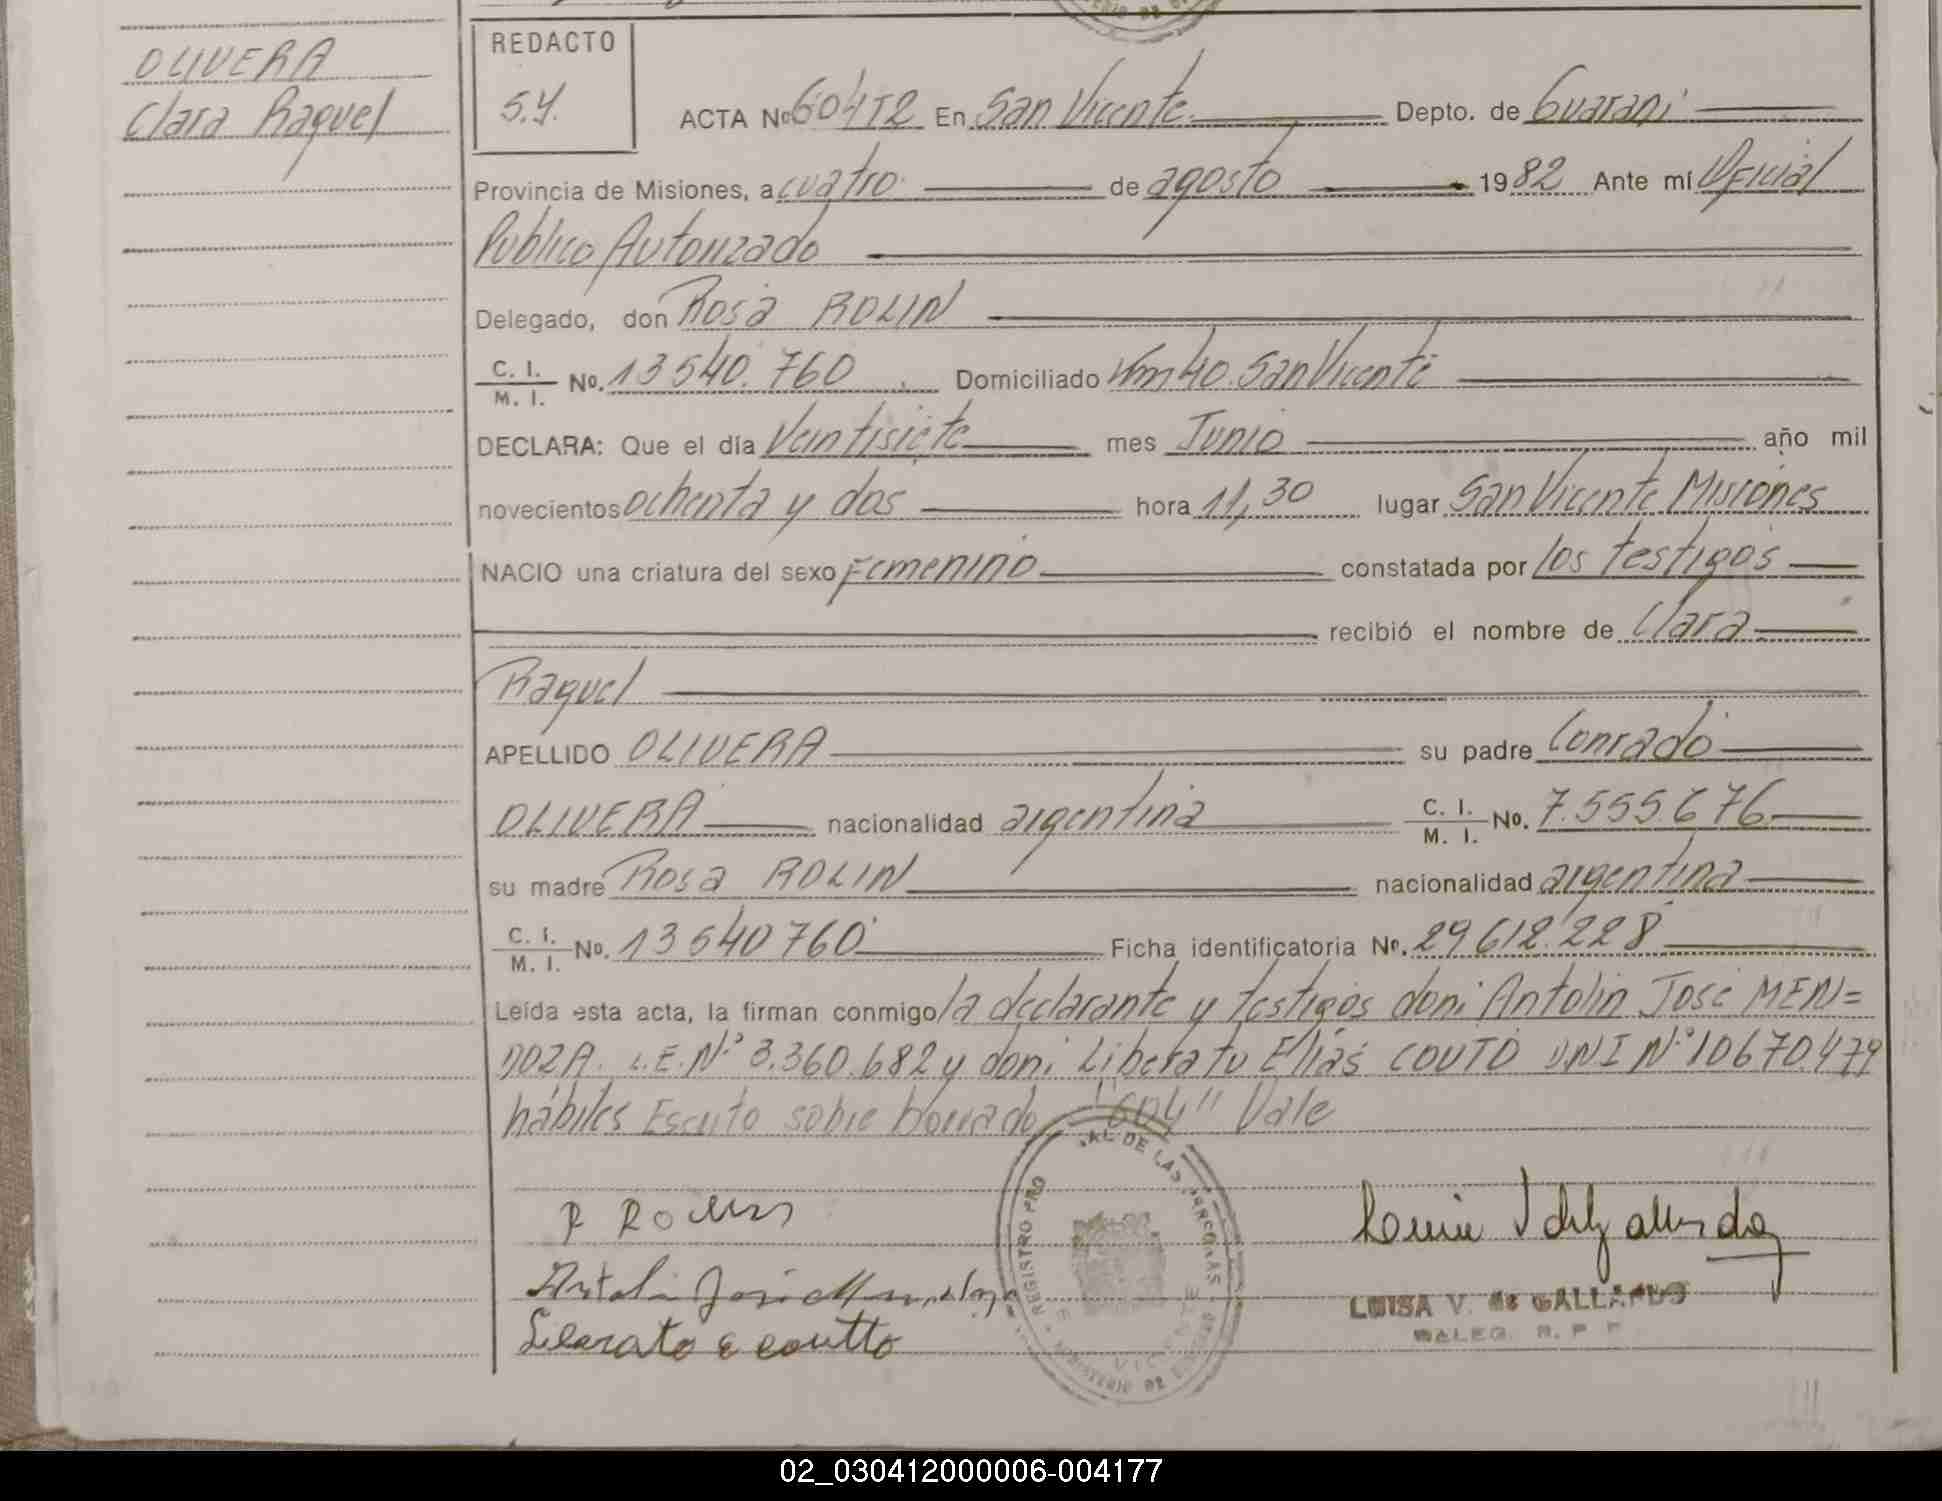 OLIVERA
Clara Raquel
REDACTO
S.Y.
ACTA Nº 604T2 En San Vicente Depto. de Guaraní
Provincia de Misiones, a cuatro de agosto 1982 Ante mí Oficial
Público Autorizado
Delegado, don Rosa ROLIN
C. I. / M. I. No. 13 540.760 Domiciliado Km 40. San Vicente
DECLARA: Que el día Veintisiete mes Junio año mil
novecientos ochenta y dos hora 11,30 lugar San Vicente Misiones
NACIO una criatura del sexo Femenino constatada por los testigos
recibió el nombre de Clara
Raquel
APELLIDO OLIVERA su padre Conrado
OLIVERA nacionalidad argentina C. I. / M. I. No. 7.555.676
su madre Rosa ROLIN nacionalidad argentina
C. I. / M. I. No. 13 540 760 Ficha identificatoria No. 29 612.228
Leída esta acta, la firman conmigo la declarante y testigos don: Antolin José MEN=
DOZA. L.E.Nº 3.360.682 y don: Liberato Elías COUTO DNI Nº 10670.479
hábiles Escrito sobre borrado "604" Vale
R Rolin
Antolin José Mendoza
Liberato e coutto
REGISTRO PRO AL DE LAS PERSONAS
VICENTE
MINISTERIO DE
LUISA V. de GALLARDO
DALEG. R. P. P.
02_030412000006-004177